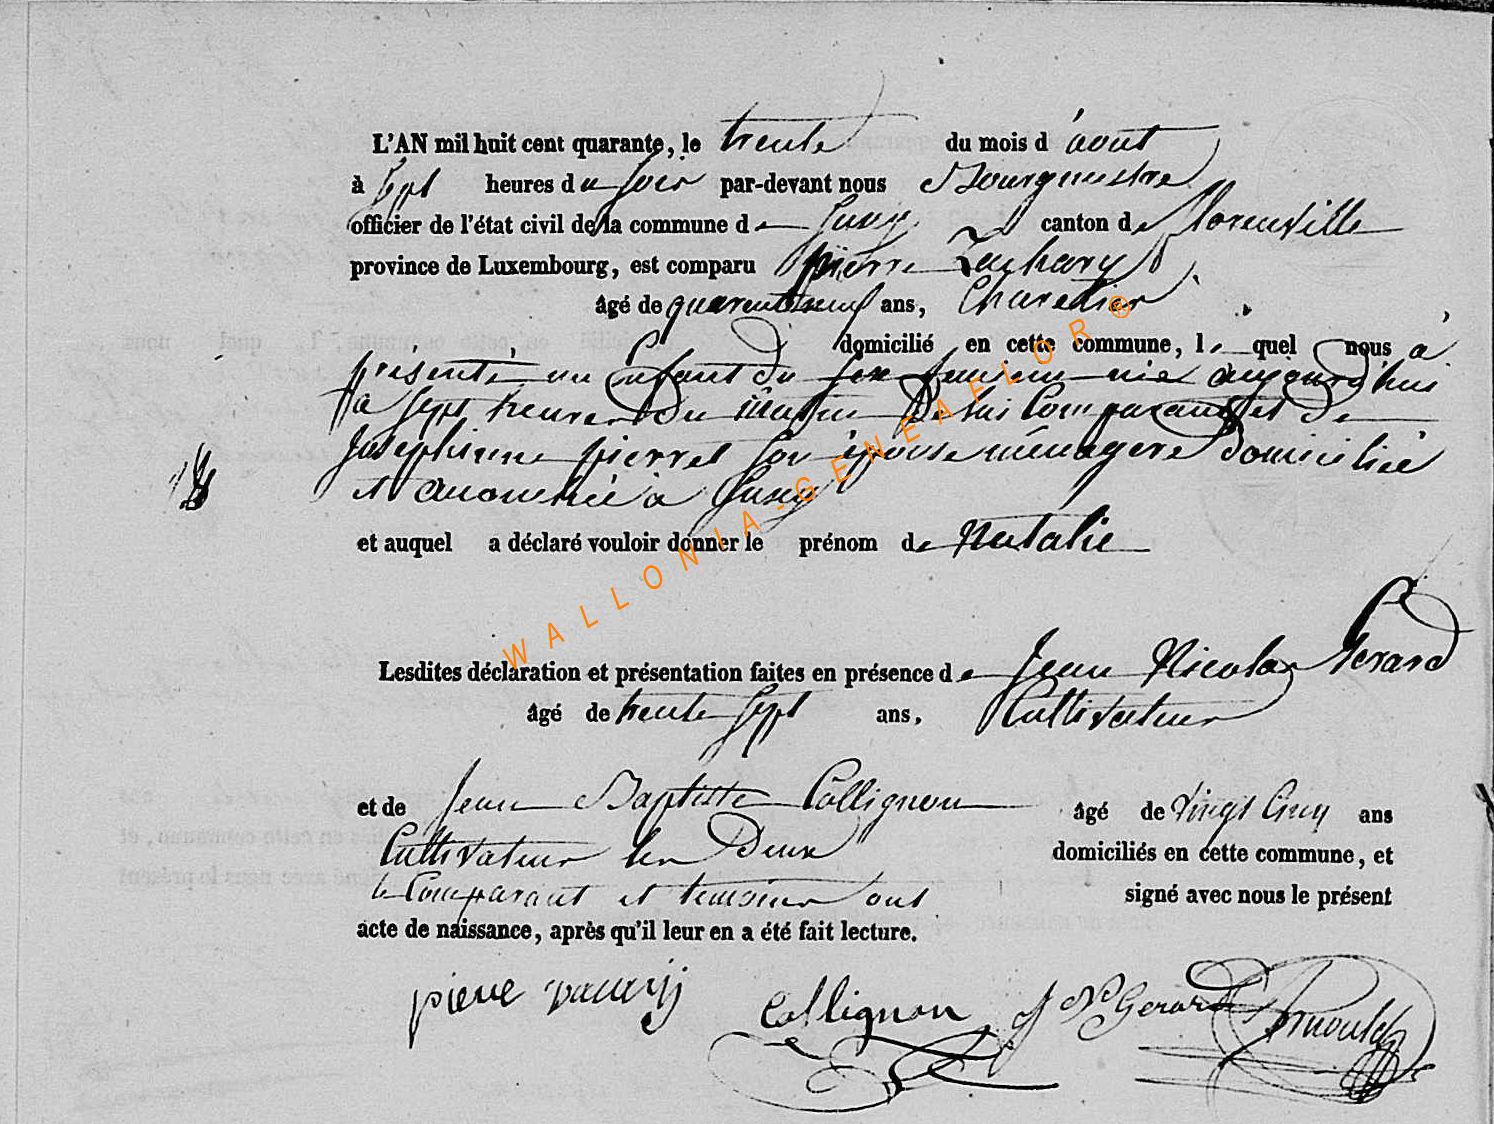 L'AN mil huit cent quarante, le trente du mois d'aout
à Sept heures du Soir par-devant nous Bourgmestre
officier de l'état civil de la commune de Jusey canton de florenville
province de Luxembourg, est comparu pierre Zachary
âgé de quarente neuf ans, Charetier
domicilié en cette commune, le quel nous à
présenté un Enfant du Sexe feminin née aujourd'hui
à Sept heures du matin de lui Comparant et de
Josephinne pierret Son épouse ménagere domiciliée
et accouchée à Jusey
et auquel a déclaré vouloir donner le prénom de Natalie
Lesdites déclaration et présentation faites en présence de Jean Nicolas Gerard
âgé de trente Sept ans, Cultivateur
et de Jean Baptiste Collignon âgé de vingt Cinq ans
Cultivateur les Deux domiciliés en cette commune, et
le Comparant et temoins ont signé avec nous le présent
acte de naissance, après qu'il leur en a été fait lecture.
pierre
Collignon JN Gerard
WALLONIA-GENEAFLOR®